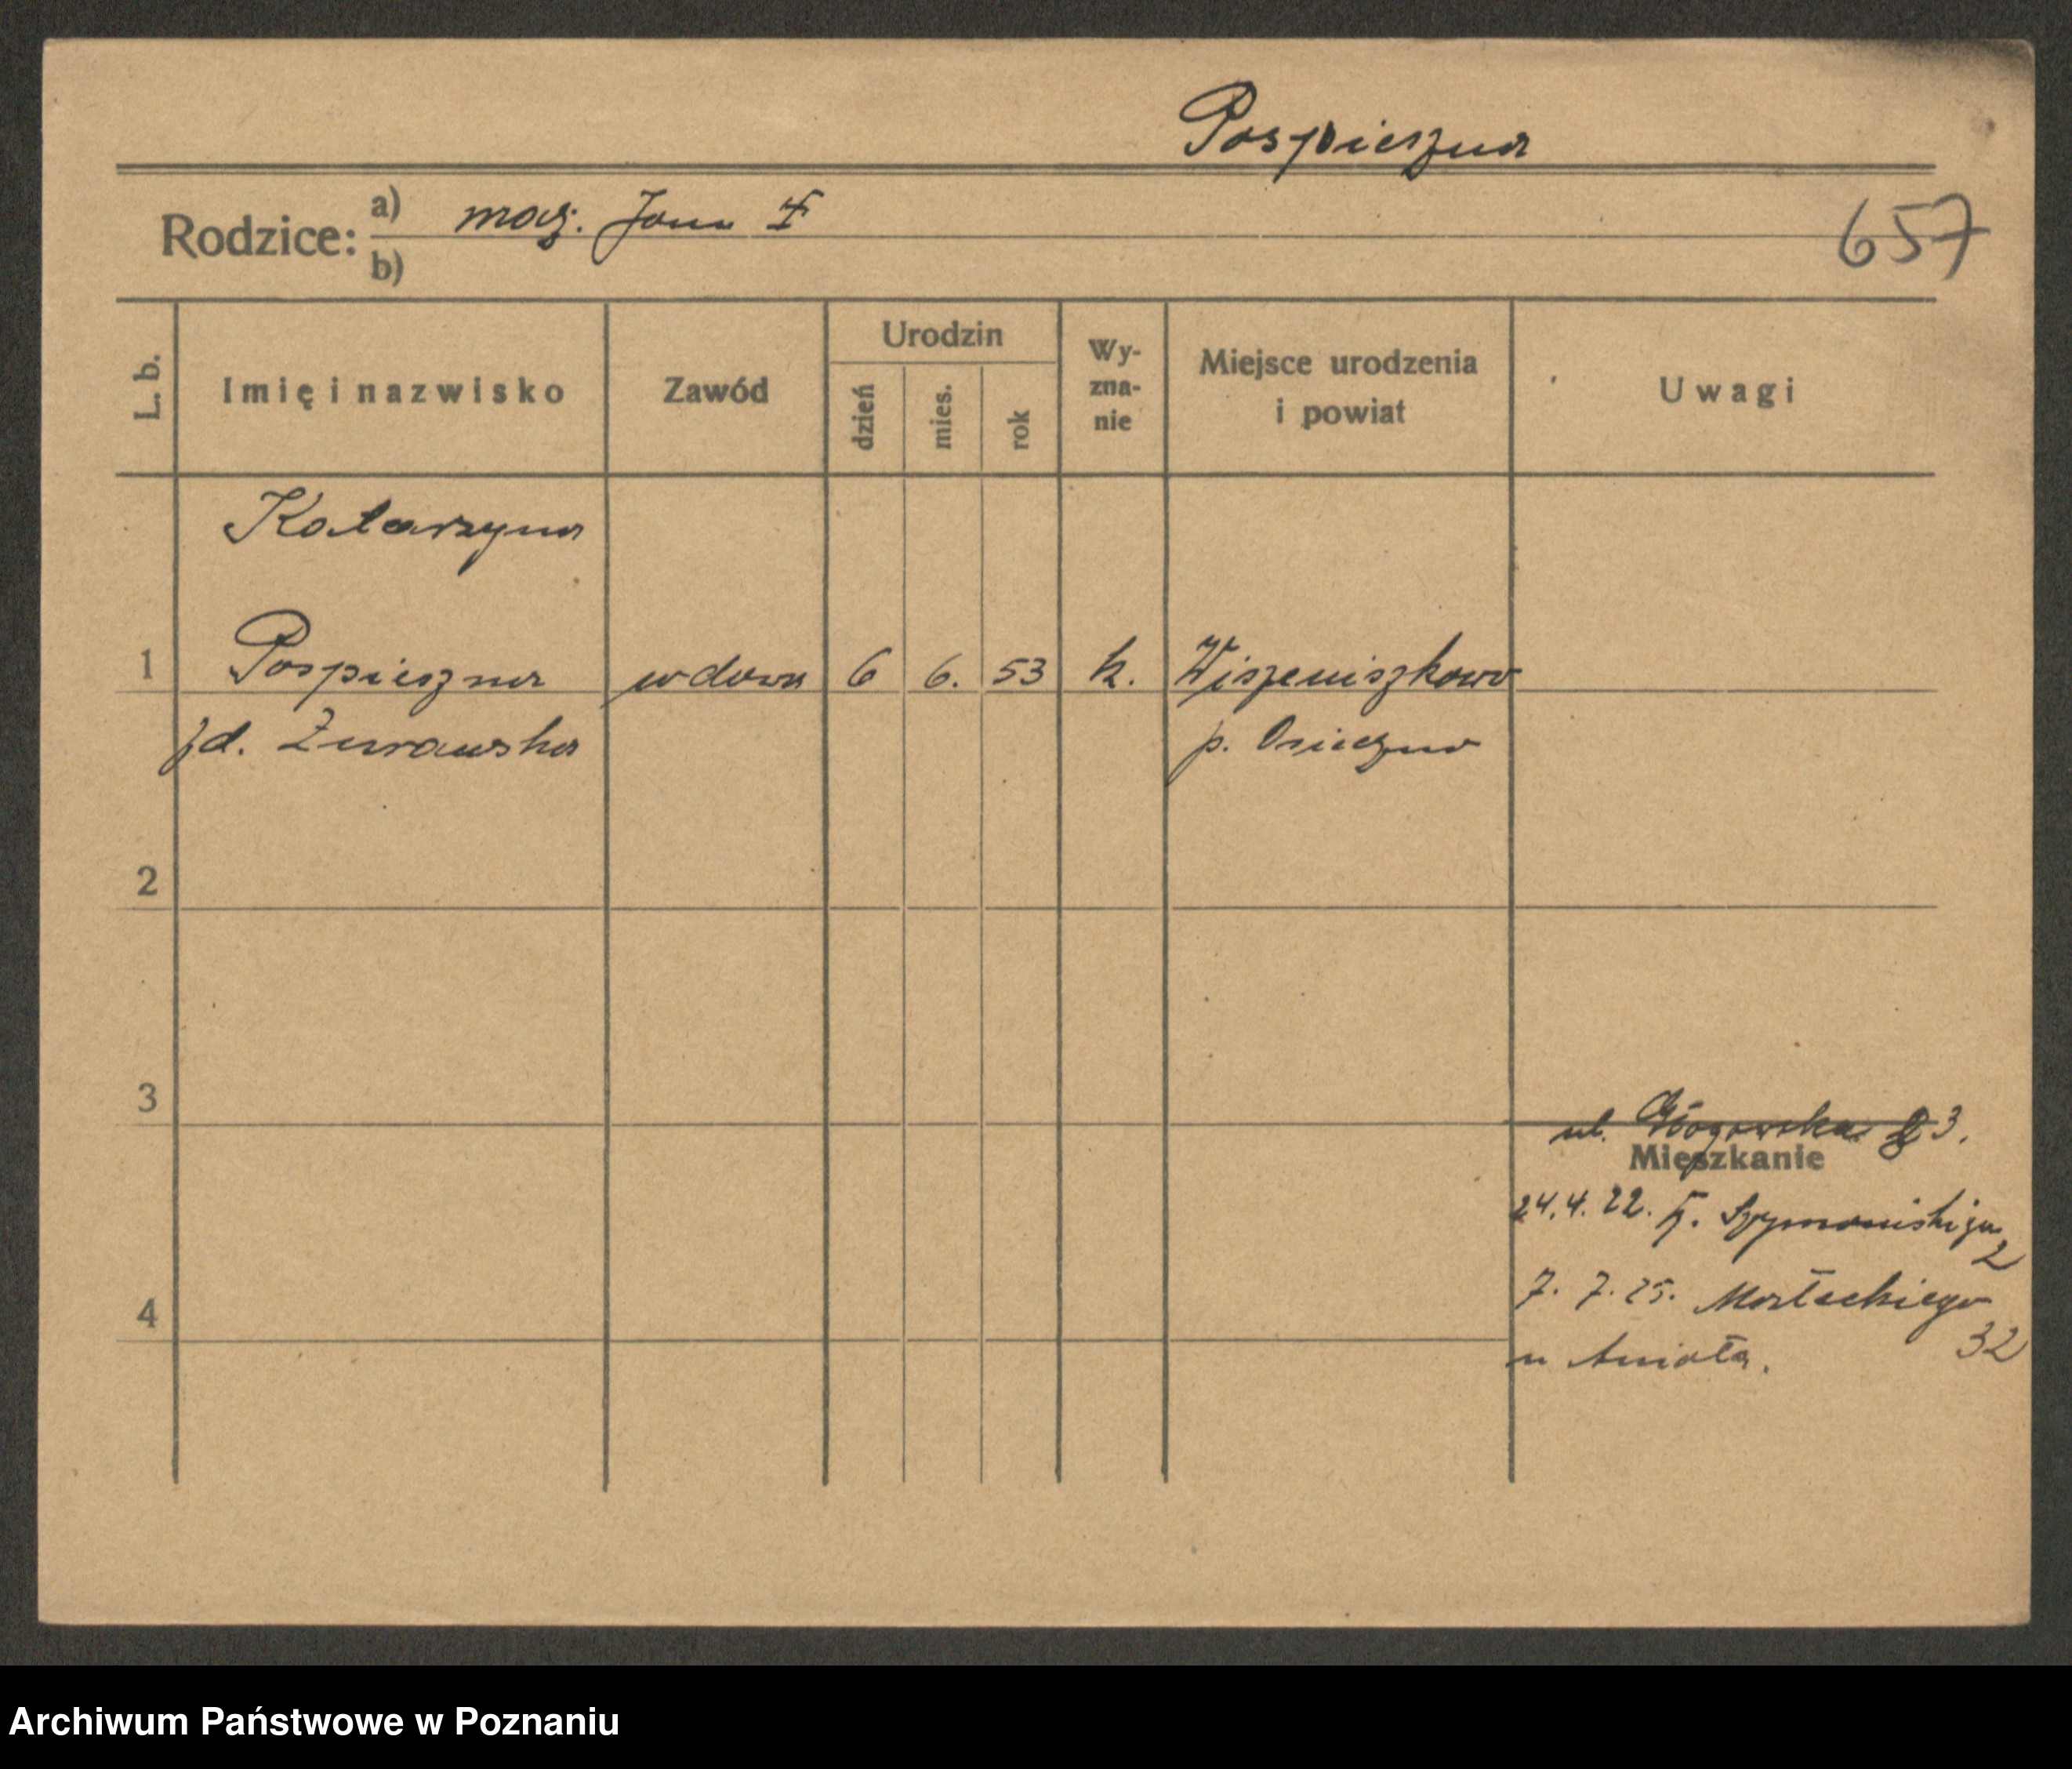 Pospieszna
Rodzice: a) mąż. Jan
b)
657
L. b.
Imię i nazwisko
Zawód
Urodzin
dzień
mies.
rok
Wy-
zna-
nie
Miejsce urodzenia
i powiat
Uwagi
Katarzyna
1 Pospieszna wdowa 6 6. 53 k. Wiszeniszkowo
zd. Żurawska p. Osieczno
2
3
ul. Głogowska 3.
Mieszkanie
24.4.22. Szymańskiego
2
7. 7. 25.
4
32
u Anioła.
Archiwum Państwowe w Poznaniu